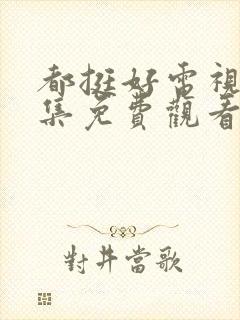 都挺好電視
集免費觀看
對井當歌